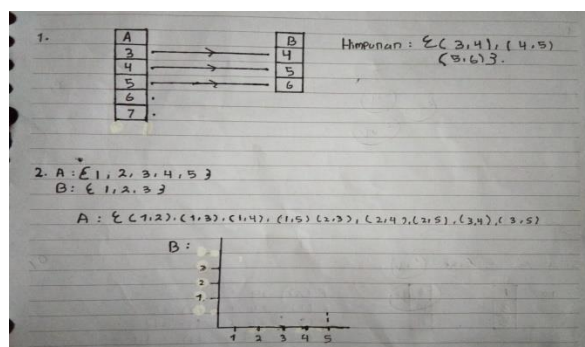 1.
A
3
4
5
6
7
B
4
5
6
Himpunan : {(3,4), (4,5)
(5,6)}.
2. A : {1, 2, 3, 4, 5}
B : {1, 2, 3}
A : {(1,2), (1,3), (1,4), (1,5) (2,3), (2,4), (2,5), (3,4), (3,5)
B :
3
2
1
1 2 3 4 5